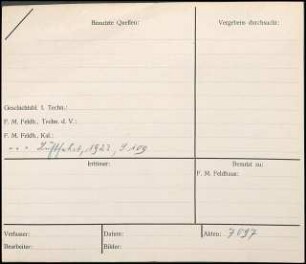 Benutzte Quellen:
Vergebens durchsucht:
Geschichtsbl. f. Techn.:
F. M. Feldh., Techn. d. V.:
F. M. Feldh., Kal.:
Luftfahrt, 1922, S. 109
Irrtümer:
Benutzt zu:
F. M. Feldhaus:
Verfasser:
Daten:
Akten: 7097
Bearbeiter:
Bilder: